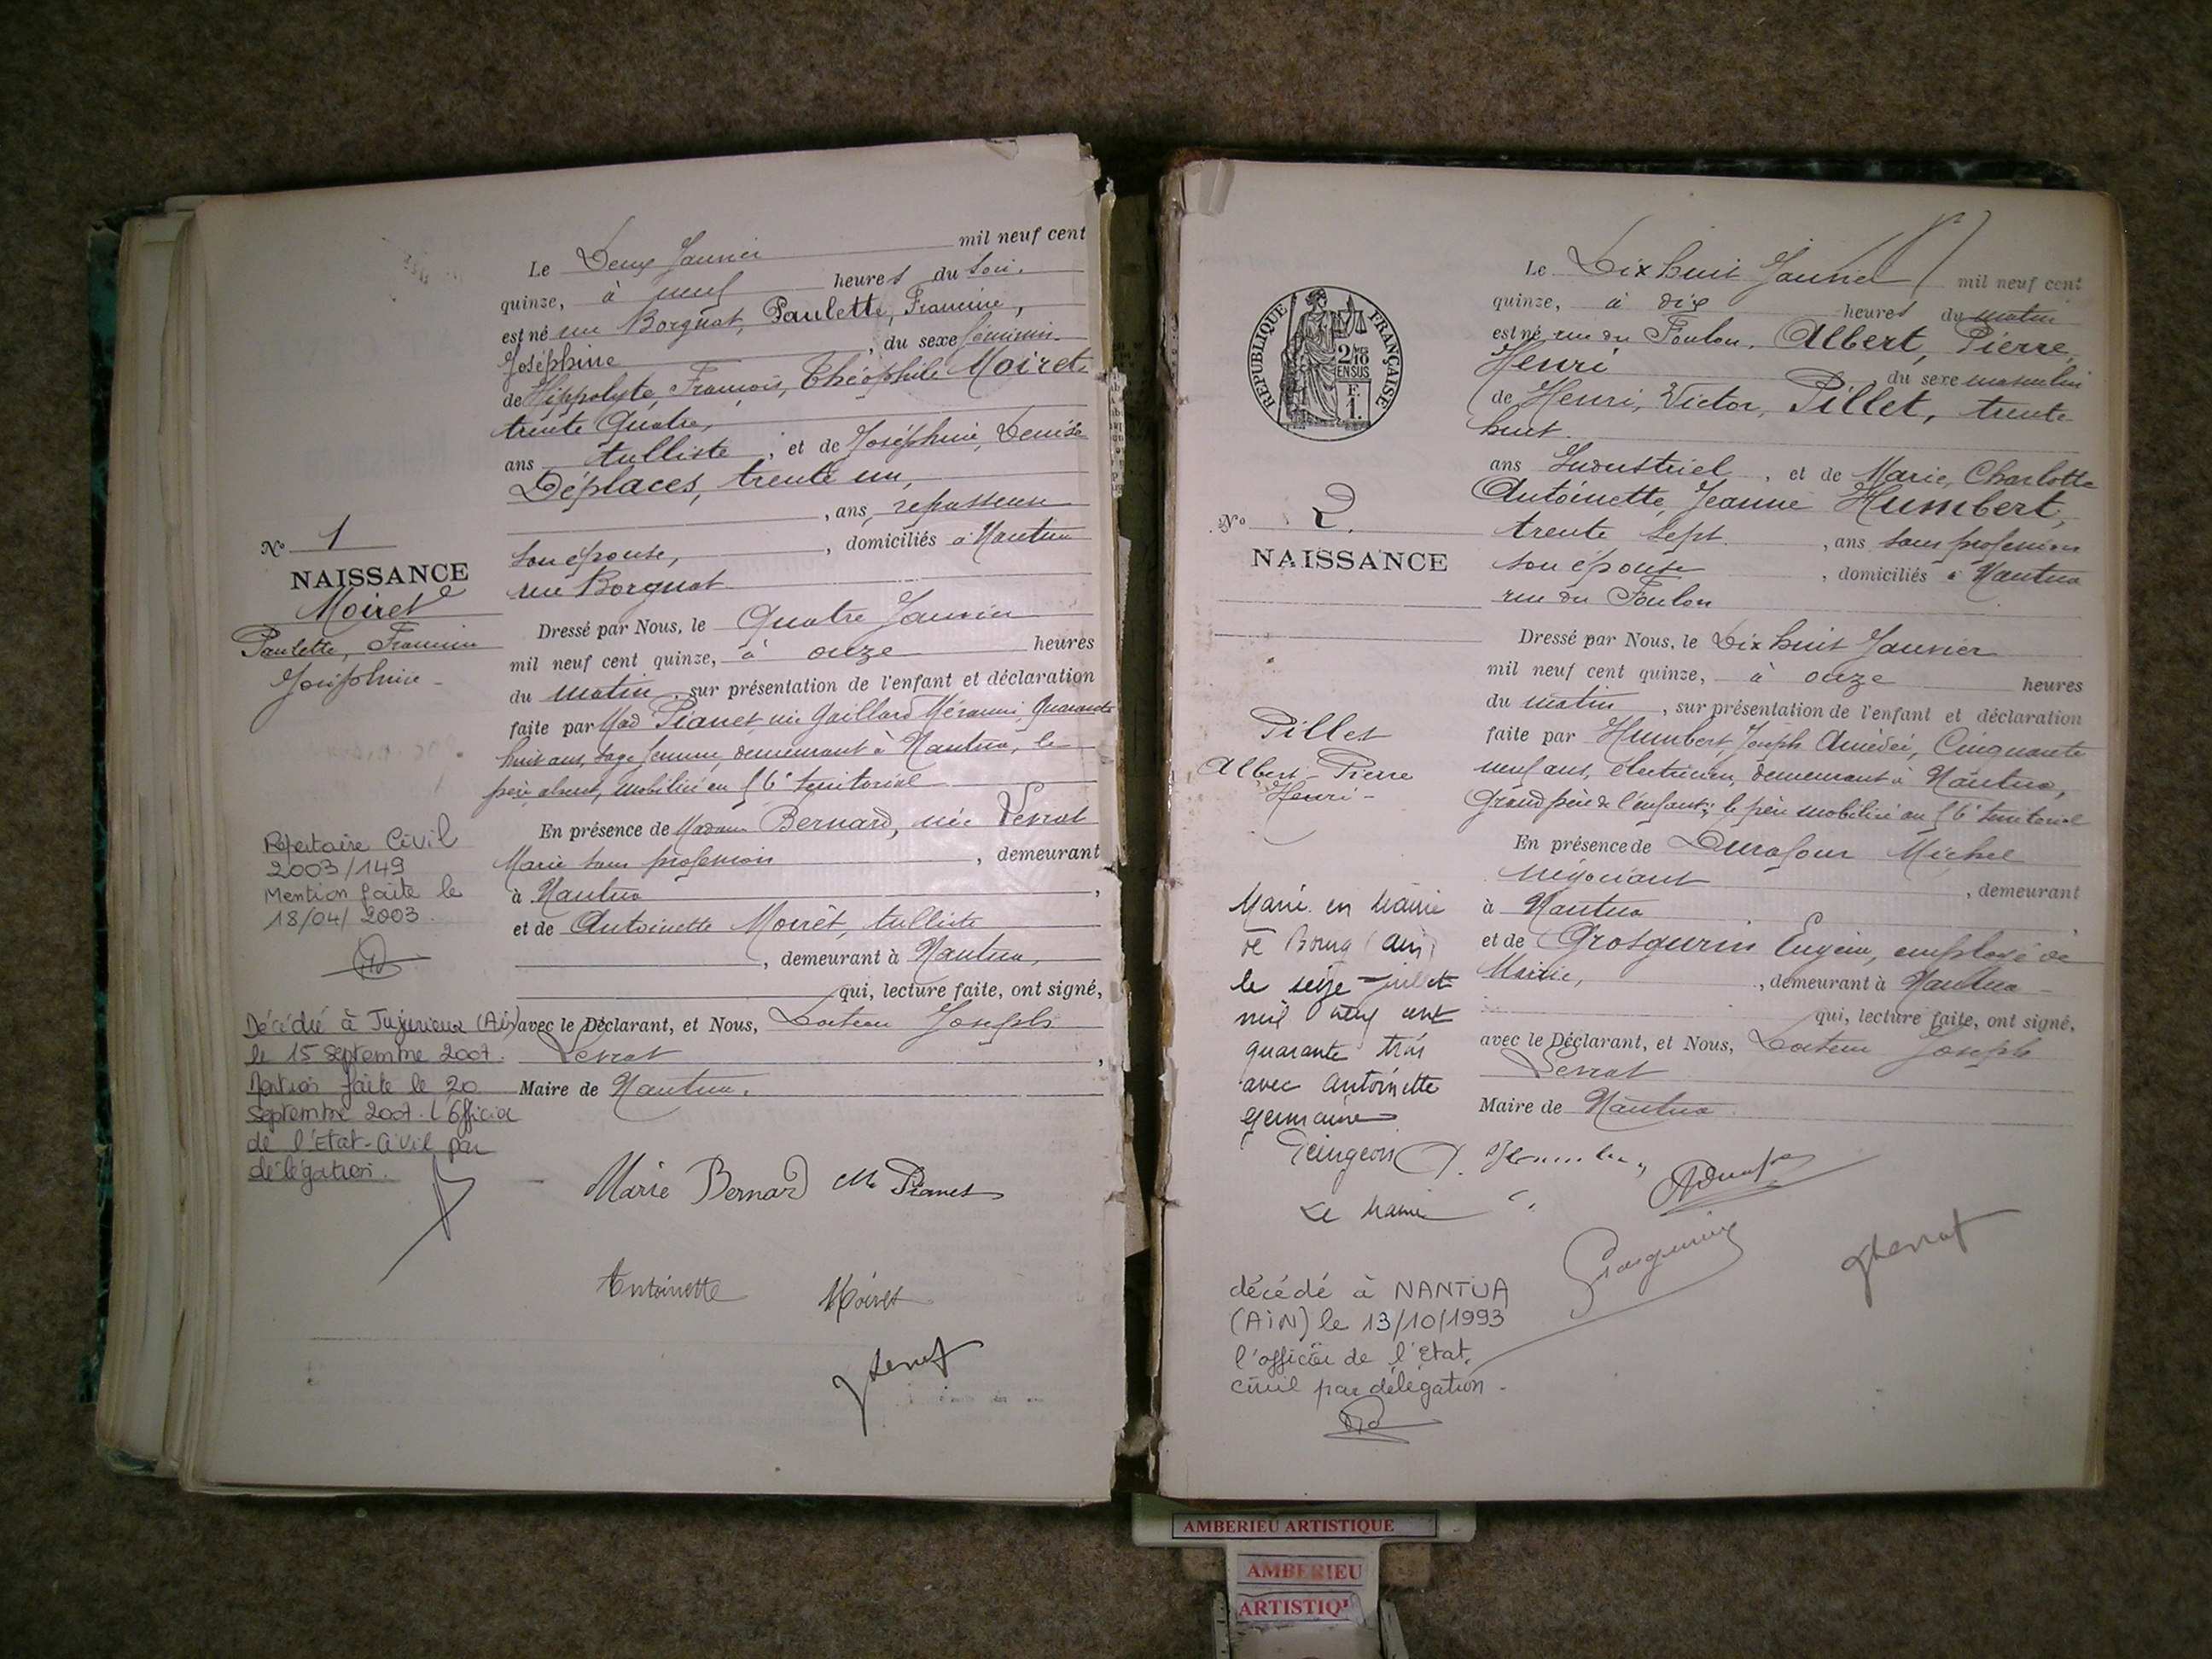 Le Deux Janvier mil neuf cent
quinze, à neuf heures du soir,
est né rue Borgnat, Paulette, Francine,
Joséphine, du sexe féminin
de Hippolyte, François, Théophile Moiret
trente quatre,
ans tulliste, et de Joséphine, Denise
Déplaces, trente un,
, ans, repasseuse
son épouse, , domiciliés à Nantua
rue Borgnat
Dressé par Nous, le Quatre Janvier
mil neuf cent quinze, à onze heures
du matin, sur présentation de l'enfant et déclaration
faite par Mad Pianet née Gaillard Quarante
huit ans, sage femme, demeurant à Nantua, le
père absent, mobilisé au 56e territorial
En présence de Madame Bernard, née Levrat
Marie sans profession , demeurant
à Nantua ,
et de Antoinette Moiret, tulliste
, demeurant à Nantua,
qui, lecture faite, ont signé,
avec le Déclarant, et Nous, Docteur Joseph
Levrat ,
Maire de Nantua.
Marie Bernard Me Pianet
Antoinette Moiret
J Levrat
No 1
NAISSANCE
Moiret
Paulette, Francine
Joséphine
Répertoire Civil
2003/149
Mention faite le
18/04/2003.
Décédée à Jujurieux (Ain)
le 15 septembre 2007.
Mention faite le 20
septembre 2007. L'Officier
de l'Etat-Civil par
délégation.
RÉPUBLIQUE FRANÇAISE
2/10 EN SUS
E.
1.
Le Dix huit Janvier mil neuf cent
quinze, à dix heures du matin
est né rue du Foulon, Albert, Pierre,
Henri du sexe masculin
de Henri, Victor, Pillet, trente
huit.
ans Industriel, et de Marie, Charlotte
Antoinette, Jeanne Humbert,
trente sept. , ans sans profession
son épouse , domiciliés à Nantua
rue du Foulon
Dressé par Nous, le Dix huit Janvier
mil neuf cent quinze, à onze heures
du matin , sur présentation de l'enfant et déclaration
faite par Humbert, Joseph Amédée, Cinquante
neuf ans, électricien, demeurant à Nantua,
Grand père de l'enfant; le père mobilisé au 56e territorial
En présence de Durafour Michel
négociant , demeurant
à Nantua
et de Grosgurin Eugène, employé de
Mairie, , demeurant à Nantua
qui, lecture faite, ont signé,
avec le Déclarant, et Nous, Docteur Joseph
Levrat
Maire de Nantua
J. Humbert
Grosgurin
J Levrat
No 2.
NAISSANCE
Pillet
Albert Pierre
Henri
Marié en Mairie
de Bourg (Ain)
le seize juillet
mil neuf cent
quarante trois
avec Antoinette
germaine
Peingeon
Le Maire
décédé à NANTUA
(AIN) le 13/10/1993
l'officier de l'Etat
civil par délégation.
AMBERIEU ARTISTIQUE
AMBERIEU
ARTISTIQ